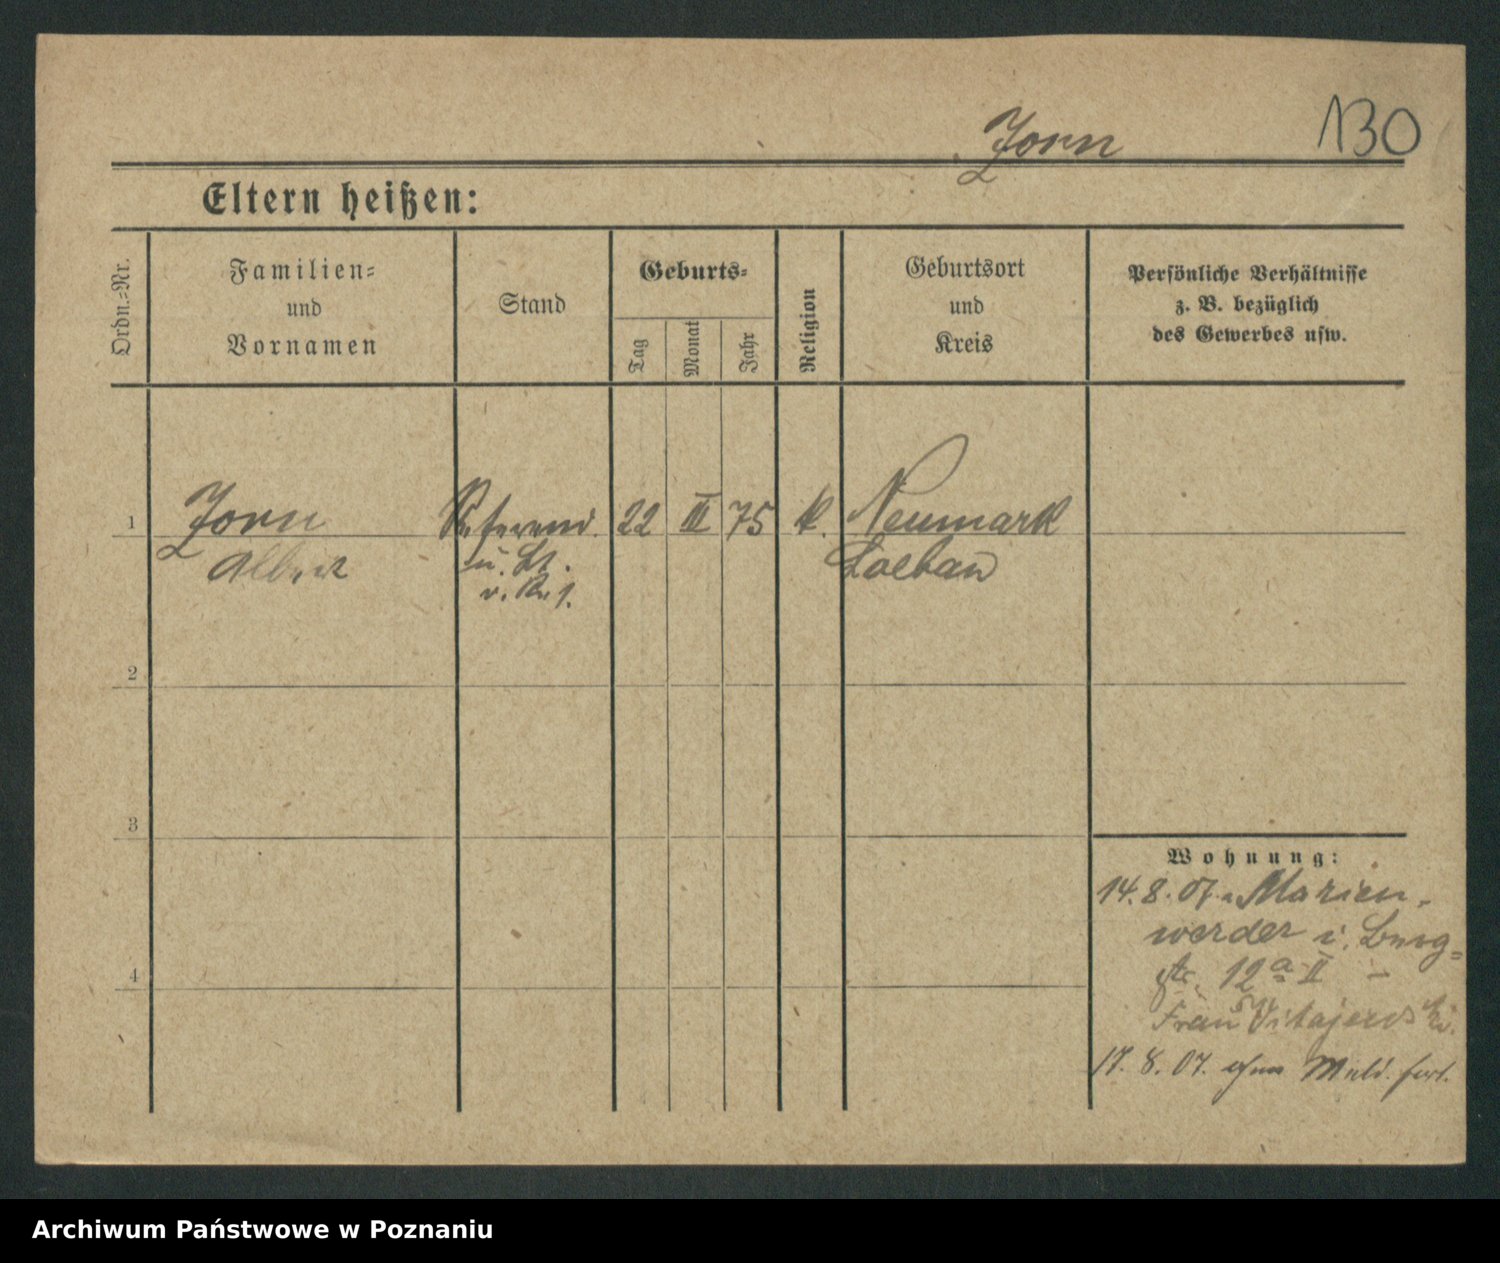 Zorn
130
Eltern heißen:
Ordn.-Nr.
Familien-
und
Vornamen
Stand
Geburts-
Tag
Monat
Jahr
Religion
Geburtsort
und
Kreis
Persönliche Verhältnisse
z. B. bezüglich
des Gewerbes usw.
1
Zorn
Albert
Referend.
u. Lt.
22
III
75
k.
Neumark
Loebau
2
3
4
Wohnung:
14. 8. 07. Marien-
werder i. Burg-
str. 12a II -
Frau
17. 8. 07. ohne Meld. fort.
Archiwum Państwowe w Poznaniu